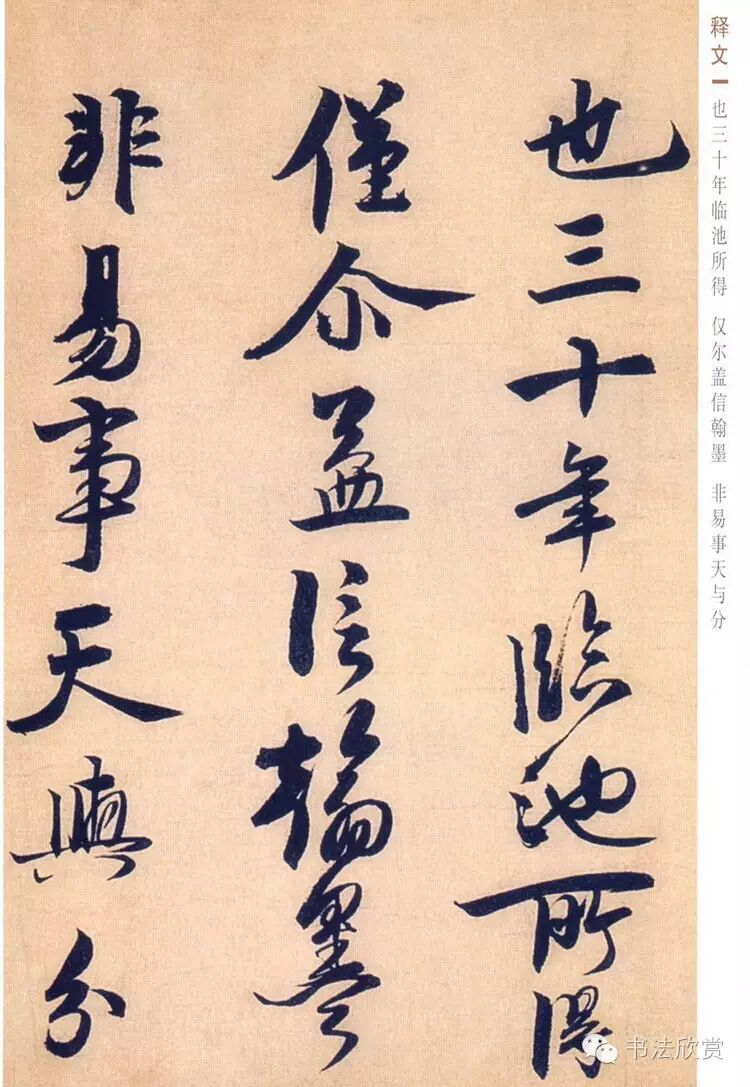 释文
也三十年临池所得 仅尔盖信翰墨 非易事天与分
也三十年臨池所得
僅尒盖信翰墨
非易事天與分
书法欣赏